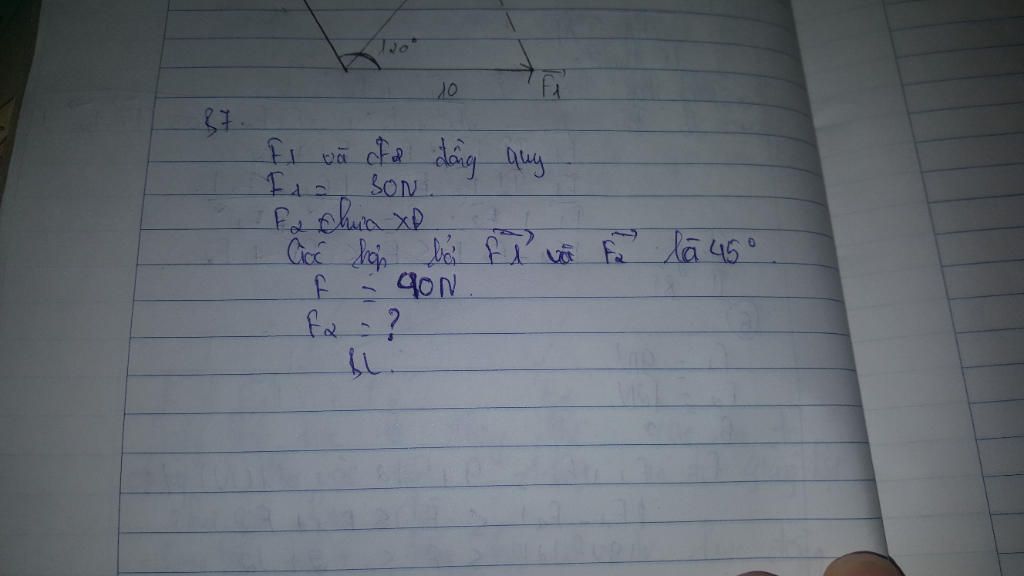 120°
10
F1
B7.
F1 và F2 đồng quy
F1 = 30N.
F2 chưa XĐ
Góc hợp bởi F1 và F2 là 45°.
F = 90N.
F2 = ?
BL.